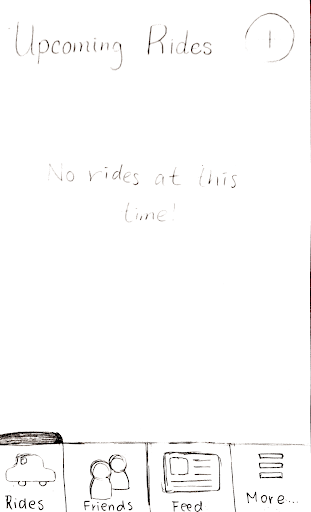 Upcoming Rides
No rides at this
time!
Rides Friends Feed More...